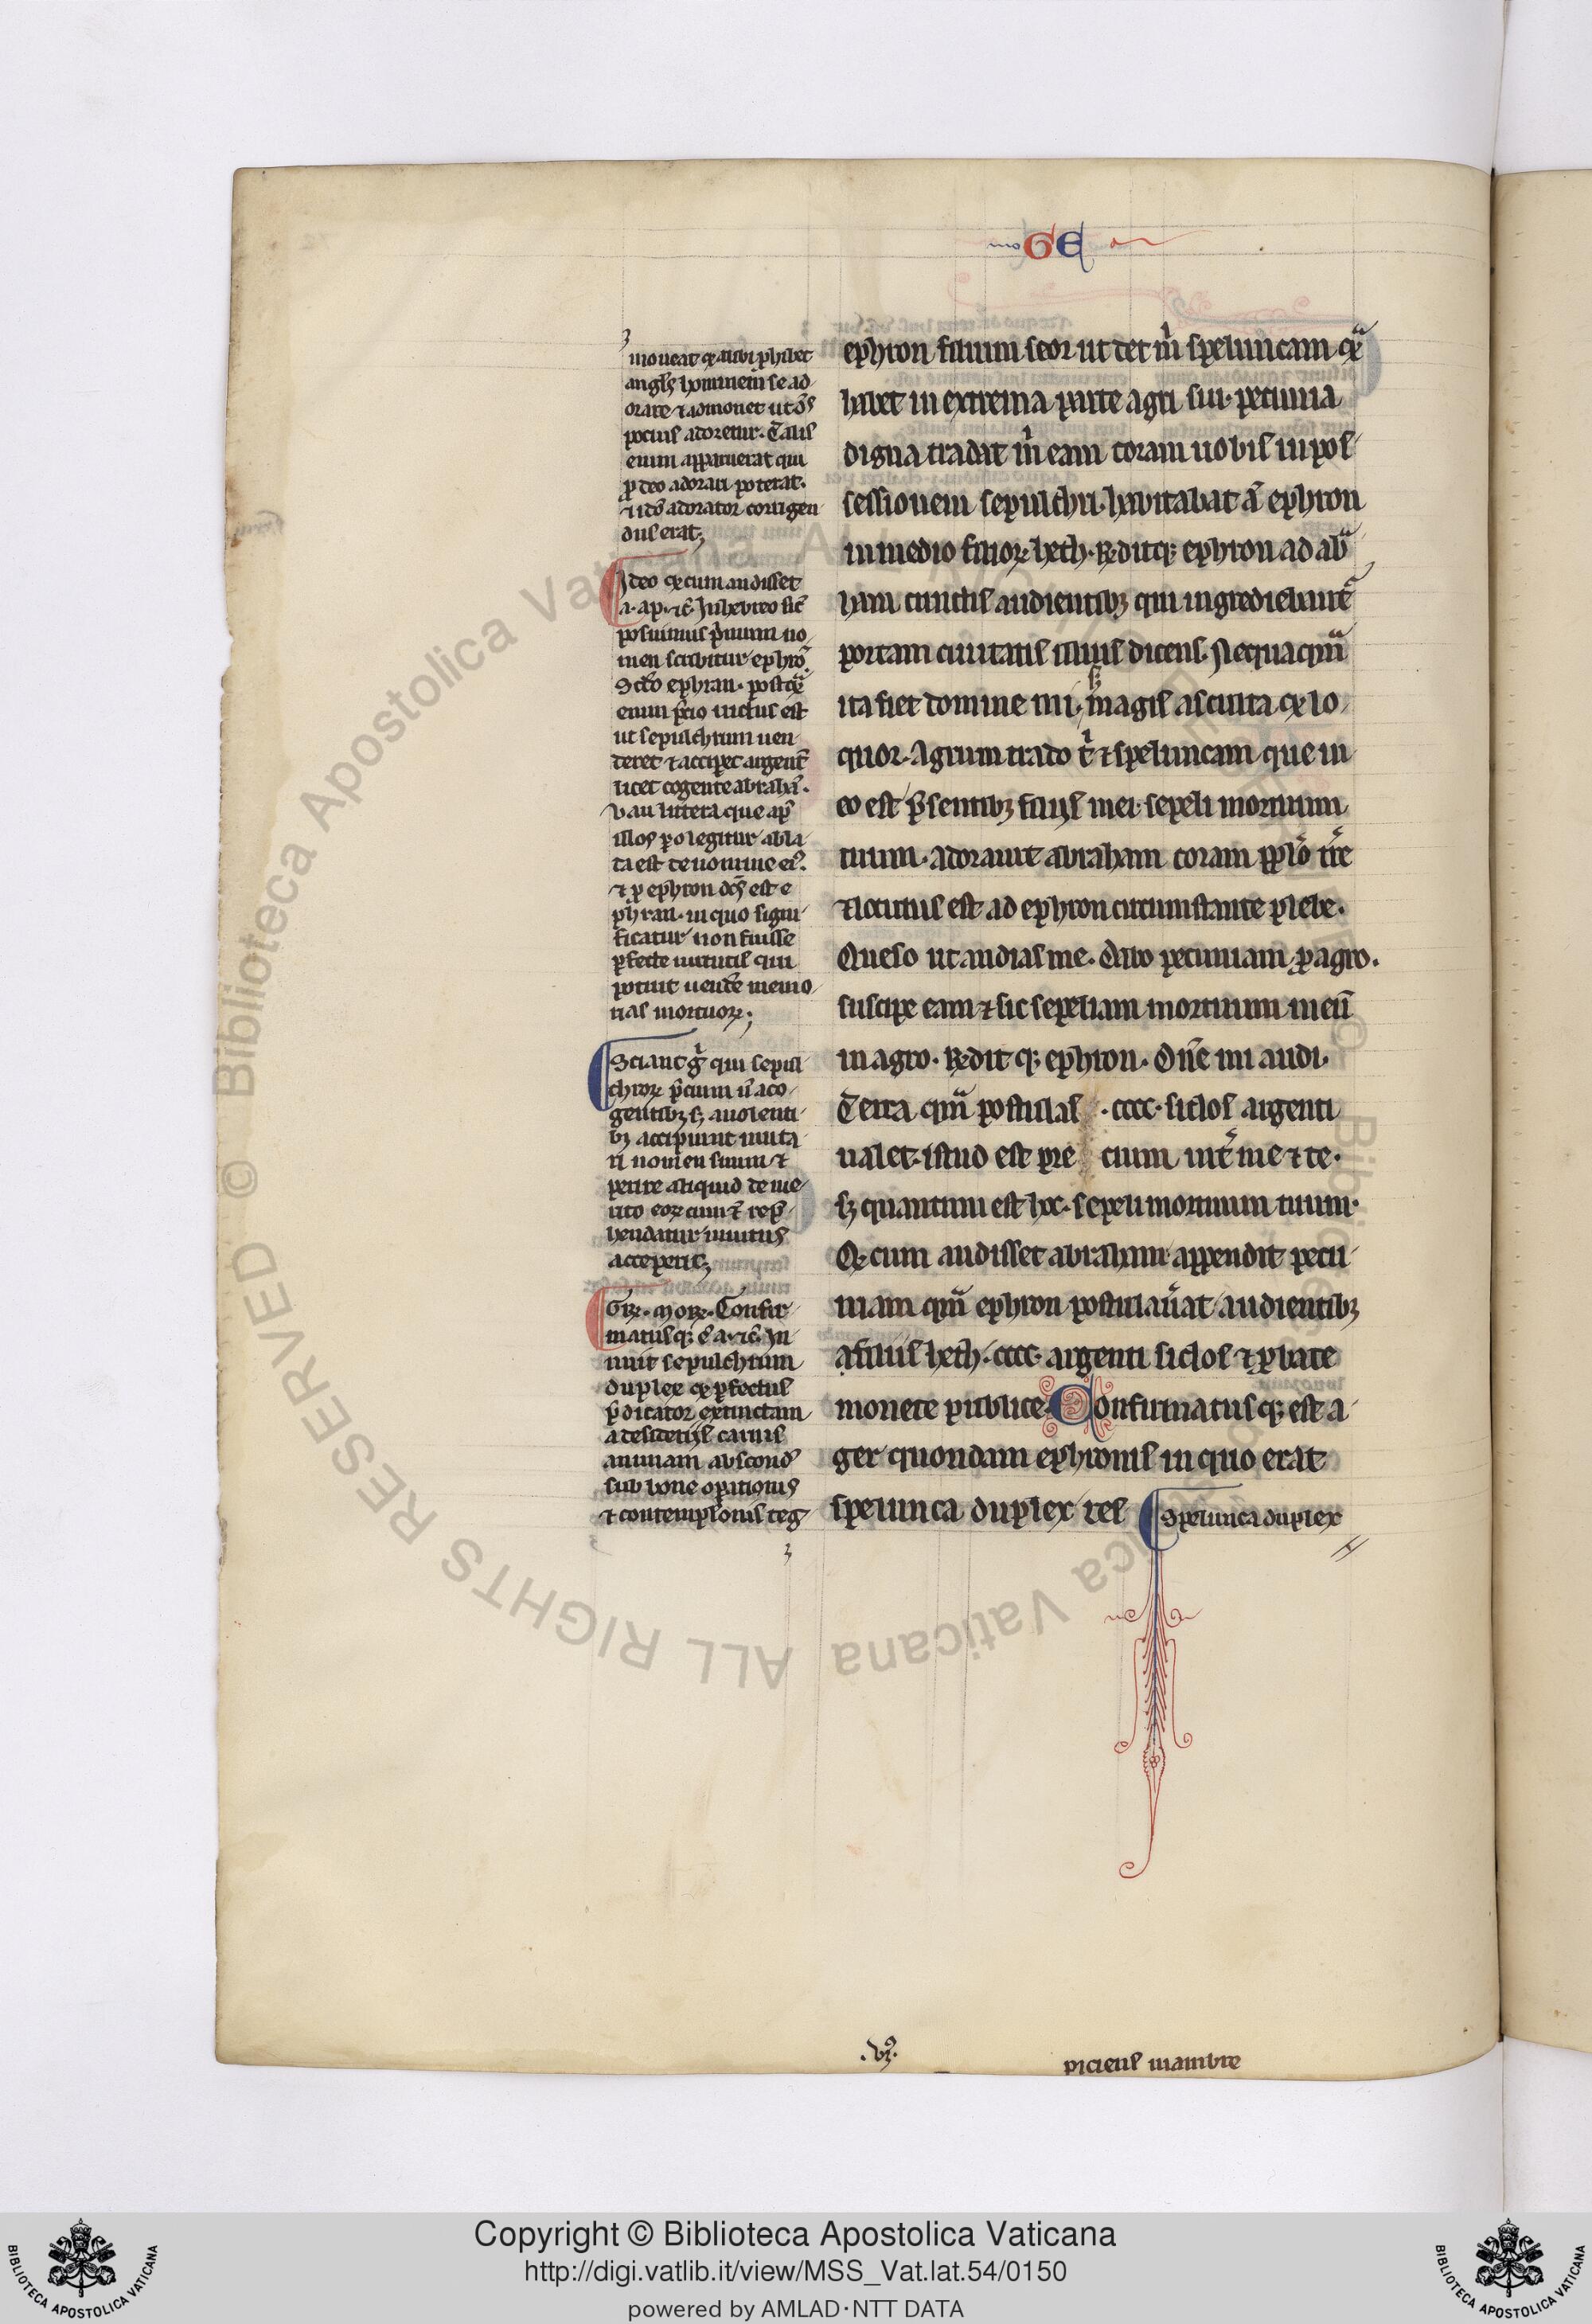 GE
moueat qd tibi phibet
angls hominem se ad
orare ⁊ admonet ut ds
pocius adoretur. Talis
enim apparuerat qui
p deo adorari poterat.
⁊ ido adorator corrigen
dus erat;
Ideo qd cum audisset
a. ap. ⁊c. In hebreo sic
posuimus pmum no
men scribitur ephro.
Scdo ephran. postqͣ
enim pcio uictus est
ut sepulchrum uen
deret ⁊ acciperet argent
licet cogente abraha.
vau littera que ap
illos p o legitur abla
ta est de nomine ei⁹.
⁊ p ephron dcs est e
phran. in quo signi
ficatur non fuisse
pfecte uirtutis qui
potuit uende memo
rias mortuoꝝ;
Sciant g̃ qui sepul
chroꝝ pcium ñ a co
gentibꝫ sꝫ a uolenti
bꝫ accipiunt muta
ri nomen suum ⁊
perire aliquid de me
rito eoꝝ cum ⁊ rep
hendatur inuitus
acceperit;
Greg. moꝝ. Confir
matusqꝫ e a. ⁊c. In
iuit sepulchrum
duplex qd pfectus
pdicator extinctam
a desiderijs carnis
animam abscond
sub bone opationis
⁊ contemplonis teg
ephron filium seor ut det m̃ speluncam qͣ
habet in extrema parte agri sui. pecunia
digna tradat m̃ eam coram uobis in pos
sessionem sepulchri. habitabat a͂ ephron
in medio filioꝝ heth. Rñditqꝫ ephron ad abͣ
ham cunctis audientibꝫ qui ingrediebant̃
portam ciuitatis illius dicens. Nequaqm̃
ita fiet domine mi. sꝫ magis asculta qd lo
quor. Agrum trado t̃ ⁊ speluncam que in
eo est p̃sentibꝫ filijs mei. sepeli mortuum
tuum. Adorauit abraham coram pplo tr̃e
⁊ locutus est ad ephron circumstante plebe.
Queso ut audias me. Dabo pecuniam p agro.
suscipe eam ⁊ sic sepeliam mortuum meũ
in agro. Rñditqꝫ ephron. Dñe mi audi.
Terra qm̃ postulas .cccc. siclos argenti
ualet. istud est pre cium int̃ me ⁊ te.
sꝫ quantum est hoc. sepeli mortuum tuum.
Qd cum audisset abraham appendit pecu
niam qm̃ ephron postulau̾at audientibꝫ
a filiis heth. cccc. argenti siclos ⁊ pbate
monete publice. Confirmatusqꝫ est a
ger quondam ephronis in quo erat
spelunca duplex res
Spelunca duplex
.vꝫ⁹.
piciens mambre
Copyright © Biblioteca Apostolica Vaticana
http://digi.vatlib.it/view/MSS_Vat.lat.54/0150
powered by AMLAD·NTT DATA
BIBLIOTECA APOSTOLICA VATICANA
BIBLIOTECA APOSTOLICA VATICANA
© Biblioteca Apostolica Vaticana ALL RIGHTS RESERVED